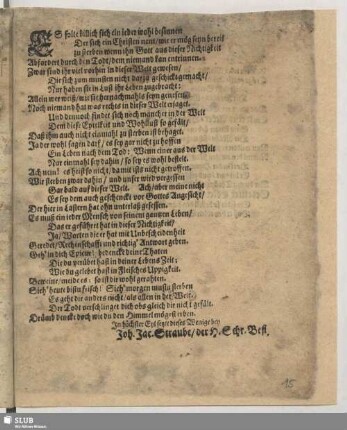 ES solte billich sich ein jeder wohl besinnen
Der sich ein Christen nent/ wie er mög seyn bereit
zu sterben wenn ihn Gott aus dieser Nichtigkeit
Abfordert durch den Todt/ dem niemand kan entrinnen.
Zwar sind ihr viel vorhin in dieser Welt gewesen/
Die sich zum wenigsten nicht darzu geschickt gemacht/
Nur haben sie in Lust ihr Leben zugebracht:
Allein wer weiß/ wie sie hernachmahls seyn genesen
Noch niemand hat was rechts in dieser Welt erjaget.
Und dennoch findet sich noch mancher in der Welt
Dem diese Eytelkeit und Wohllust so gefält/
Daß ihm auch nicht einmahl zu sterben ist behaget.
Ja der wohl sagen darf/ es sey gar nicht zu hoffen
Ein Leben nach dem Tod: Wenn einer aus der Welt
Nur einmahl sey dahin/ so sey es wohl bestelt.
Ach nein! es heist so nicht/ damit ists nicht getroffen.
Wir sterben zwar dahin/ und unser wird vergessen
Gar bald auf dieser Welt. Ach/ aber meine nicht
Es sey dem auch geschenckt vor Gottes Angesicht/
Der hier in Lastern hat ohn unterlaß gesessen.
Es muß ein jeder Mensch von seinem gantzen Leben/
Das er geführet hat in dieser Nichtigkeit/
Ja/ Worten die er hat mit Unbescheidenheit
Geredet/ Rechenschafft und richtig' Antwort geben.
Geh' in dich bedencke deine Thaten
Die du verübet hast in deiner Lebens Zeit;
Wie du gelebet hast in Fleisches Uppigkeit.
Beweine/ meide es: so ist dir wohl gerahten.
Sieh' heute bistu frisch/ Sich' morgen mustu sterben
Es geht dir anders nicht/ als allen in der Welt.
Der Todt verschlinget dich obs gleich dir nicht gefält.
Drümb denck doch wie du den Himmel mögst erben.
In höchster Eyl setzte dieses Wenige bey
Joh. Jac. Straube/ der H. Schr. Befl.
15
SLUB